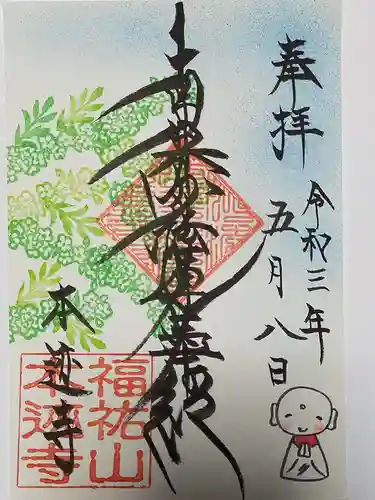 奉拝
令和三年
五月八日
南無妙法蓮華経
本蓮寺
福祐山
本蓮寺